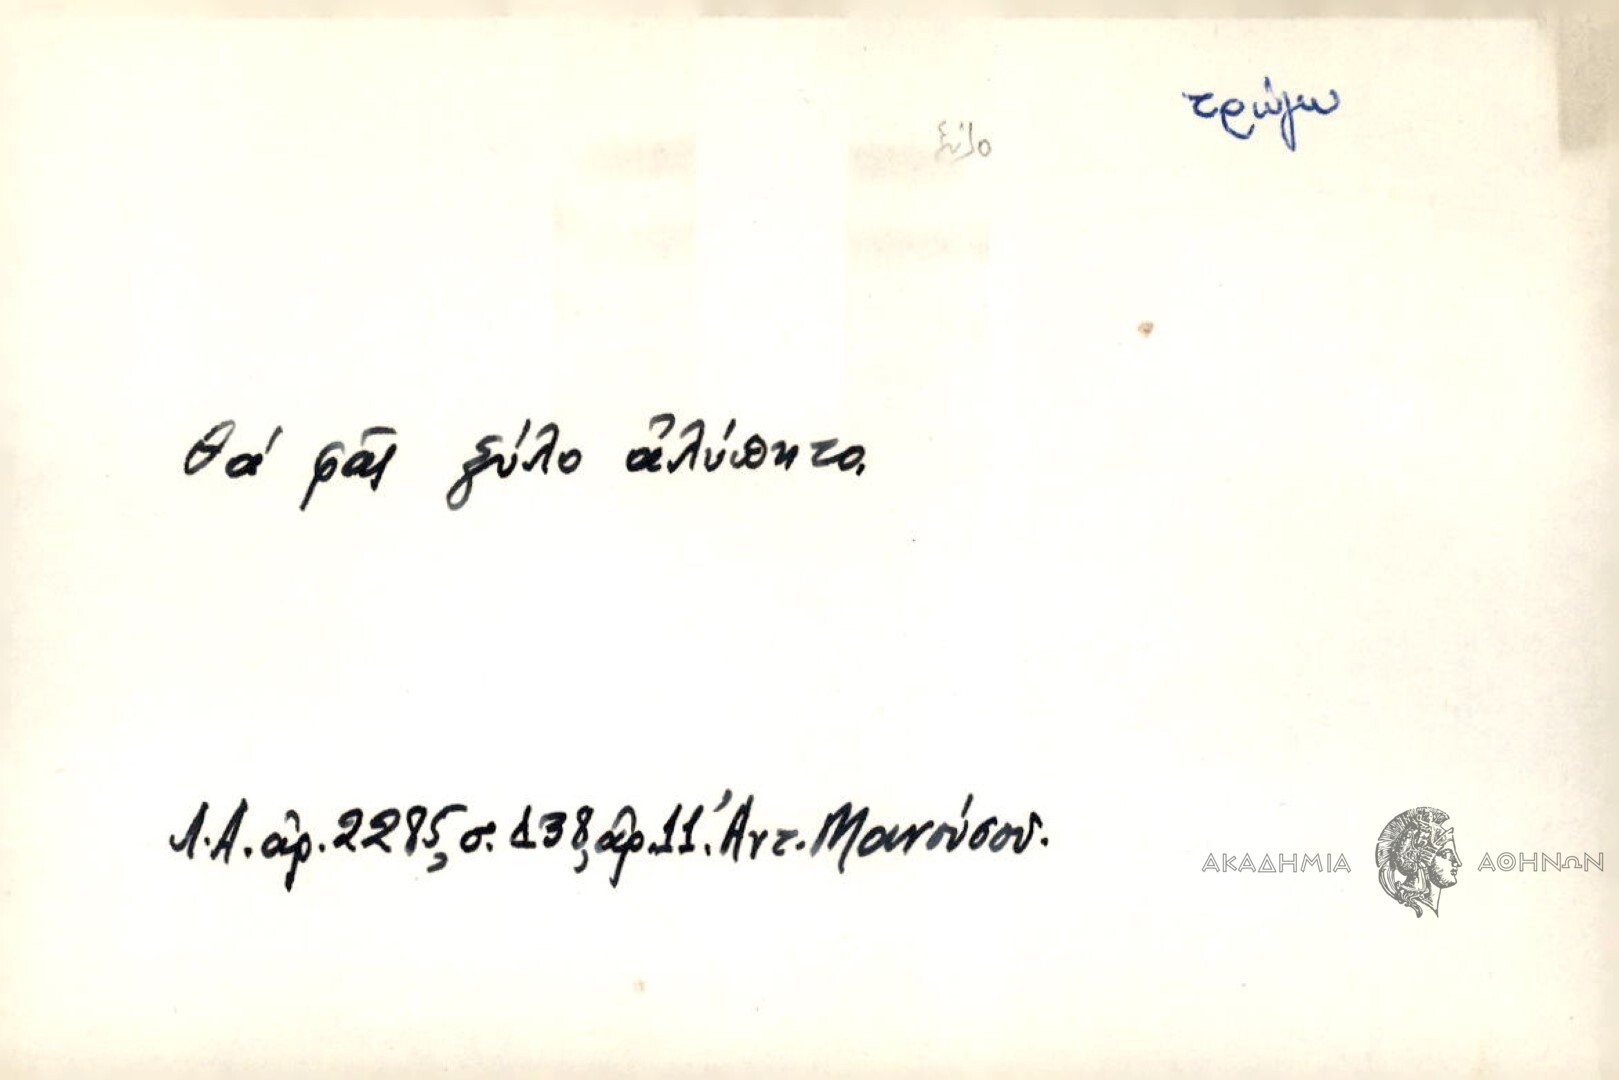 τρώγω
ξύλο
Θά φᾶς ξύλο ἀλύπητο.
Λ.Α. ἀρ. 2285, σ. 138, ἀρ. 11. Ἀντ. Μανούσου.
ΑΚΑΔΗΜΙΑ ΑΘΗΝΩΝ